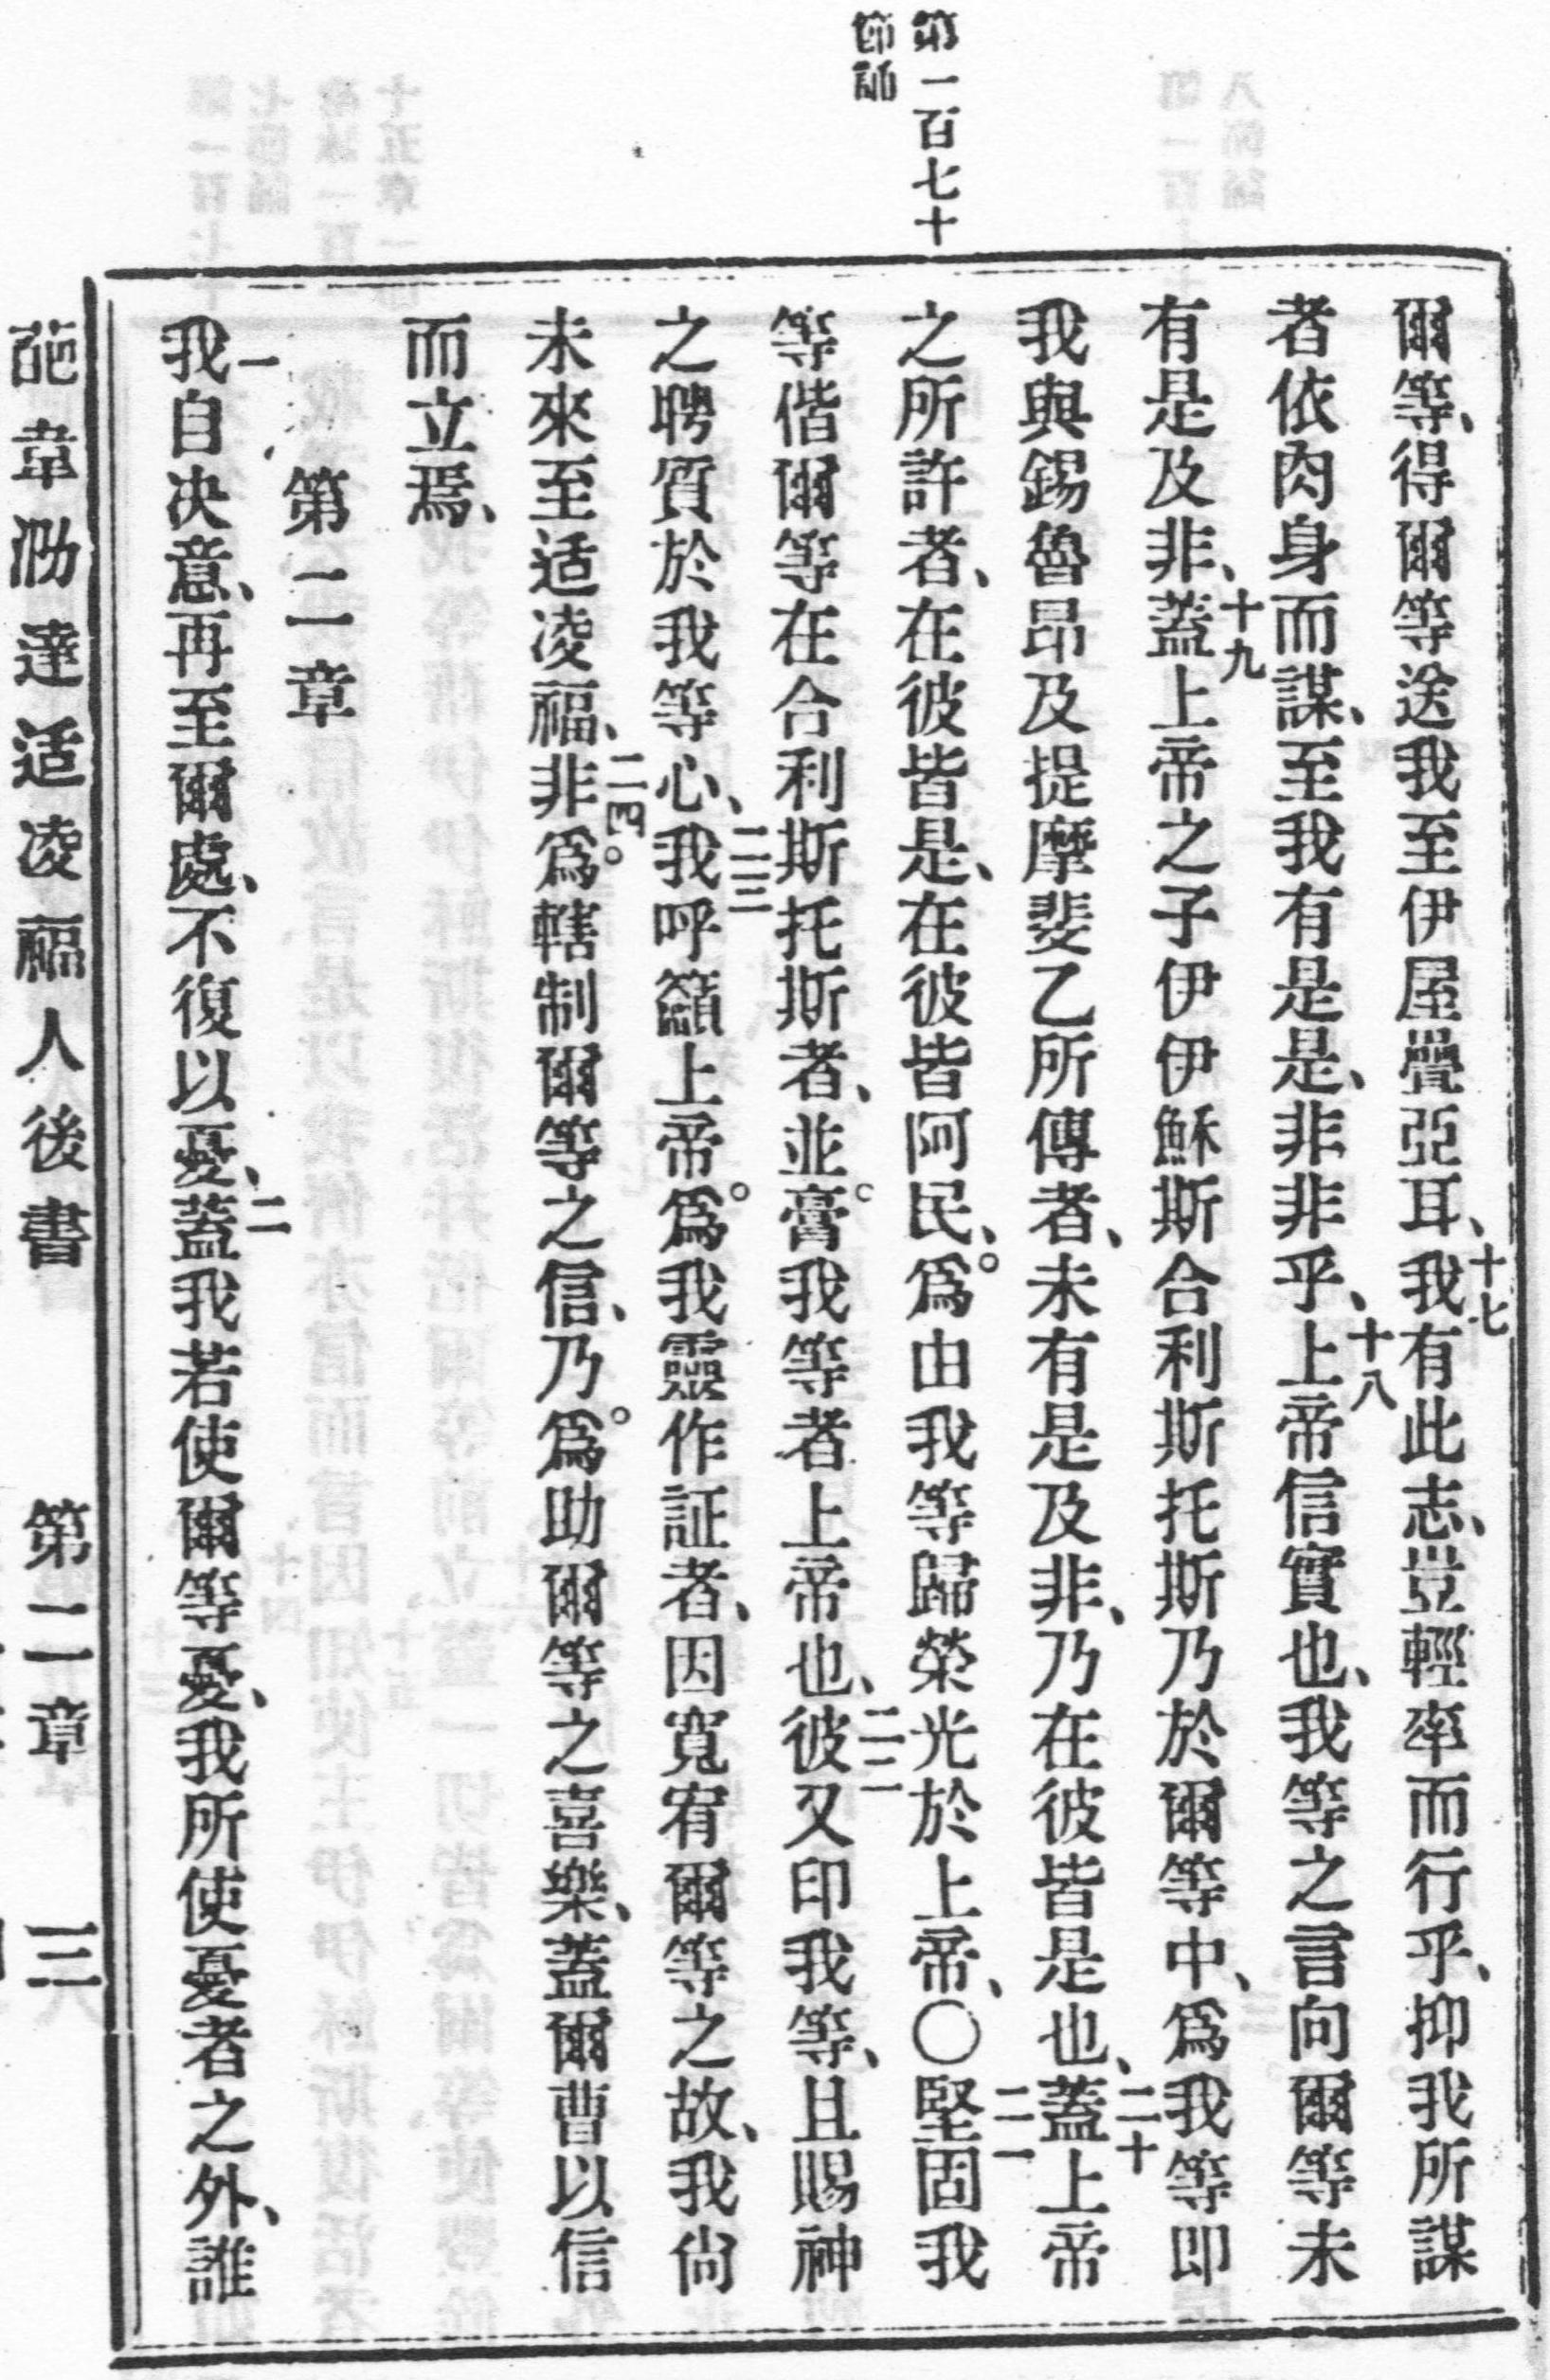 第一百七十
節誦
爾等、得爾等送我至伊屋疊亞耳、十七我有此志、豈輕率而行乎、抑我所謀
者依肉身而謀、至我有是是、非非乎、十八上帝信實也、我等之言向爾等未
有是及非、十九蓋上帝之子伊伊穌斯合利斯托斯乃於爾等中、爲我等卽
我與錫魯昂及提摩斐乙所傳者、未有是及非、乃在彼皆是也、二十蓋上帝
之所許者、在彼皆是、在彼皆阿民、爲由我等歸榮光於上帝、〇二一堅固我
等偕爾等在合利斯托斯者、並膏我等者上帝也、二二彼又印我等、且賜神
之聘質於我等心、二三我呼籲上帝爲我靈作証者、因寬宥爾等之故、我尙
未來至适凌福、二四非爲轄制爾等之信、乃爲助爾等之喜樂、蓋爾曹以信
而立焉、
第二章
一我自决意、再至爾處、不復以憂、二蓋我若使爾等憂、我所使憂者之外、誰
達适凌福人後書 第二章 三